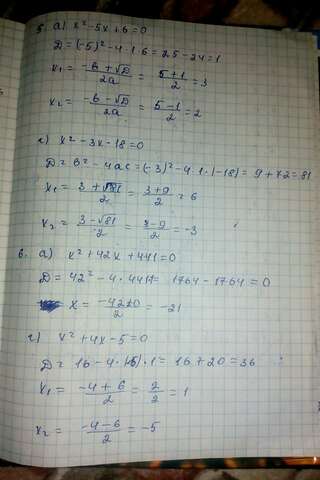 5. а) x² - 5x + 6 = 0
D = (-5)² - 4 · 1 · 6 = 25 - 24 = 1
x₁ = (-в + √D)/2a = (5 + 1)/2 = 3
x₂ = (-в - √D)/2a = (5 - 1)/2 = 2
г) x² - 3x - 18 = 0
D = в² - 4ac = (-3)² - 4 · 1 · (-18) = 9 + 72 = 81
x₁ = (3 + √81)/2 = (3 + 9)/2 = 6
x₂ = (3 - √81)/2 = (3 - 9)/2 = -3
6. а) x² + 42x + 441 = 0
D = 42² - 4 · 441 = 1764 - 1764 = 0
x = (-42 ± 0)/2 = -21
г) x² + 4x - 5 = 0
D = 16 - 4 · (-5) · 1 = 16 + 20 = 36
x₁ = (-4 + 6)/2 = 2/2 = 1
x₂ = (-4 - 6)/2 = -5